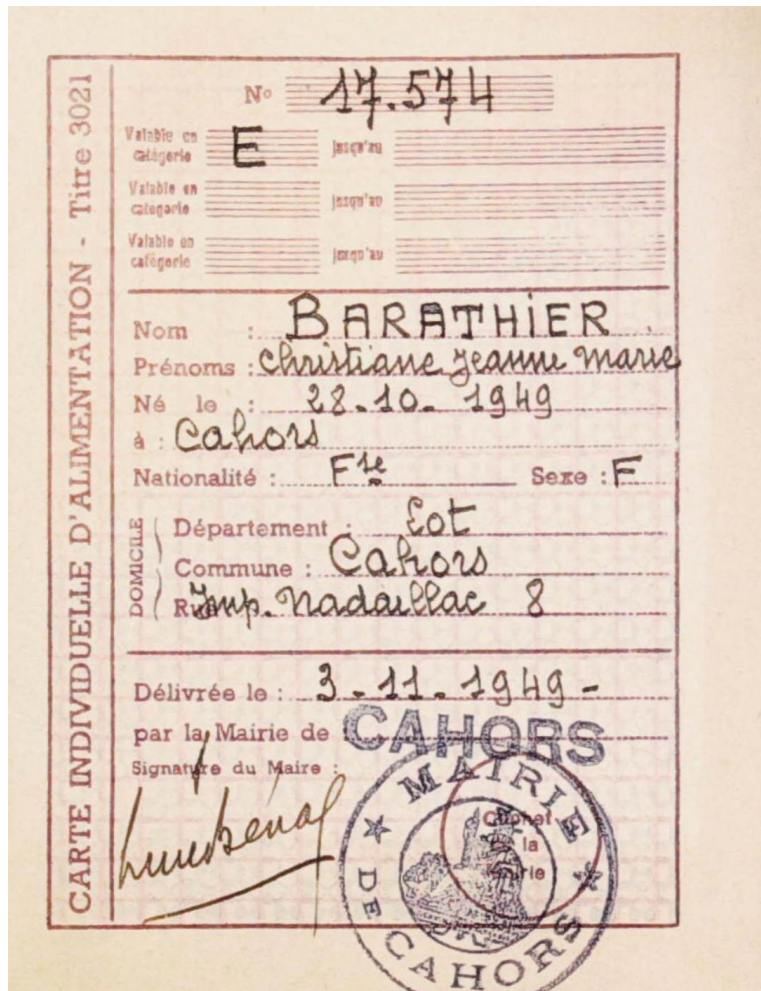 CARTE INDIVIDUELLE D'ALIMENTATION - Titre 3021
N° 17.574
Valable en catégorie E jusqu'au
Valable en catégorie jusqu'au
Valable en catégorie jusqu'au
Nom : BARATHIER
Prénoms : Christiane Jeanne Marie
Né le : 28.10.1949
à : Cahors
Nationalité : Fse Sexe : F
DOMICILE
Département : Lot
Commune : Cahors
Rue Imp. Nadaillac 8
Délivrée le : 3.11.1949-
par la Mairie de CAHORS
Signature du Maire :
Cachet
de la
Mairie
MAIRIE
DE CAHORS